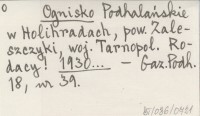 o
Ognisko Podhalańskie
w Holihradach, pow. Zale-
szczyki, woj. Tarnopol. Ro-
dacy! 1930.... — Gaz. Podh.
18, nr 39.